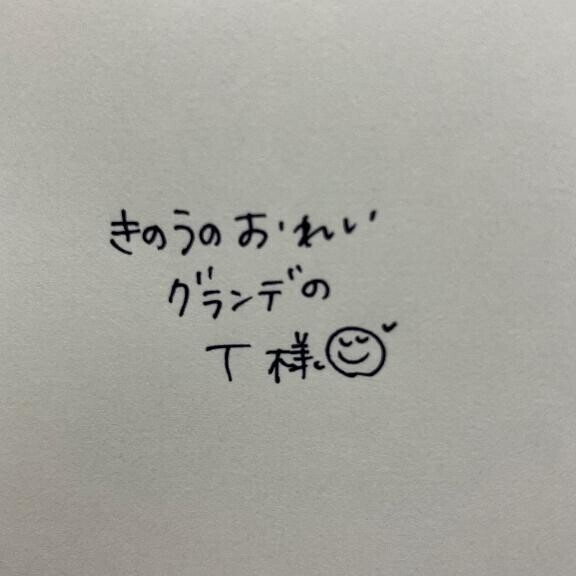 きのうのおれい
グランデの
T様